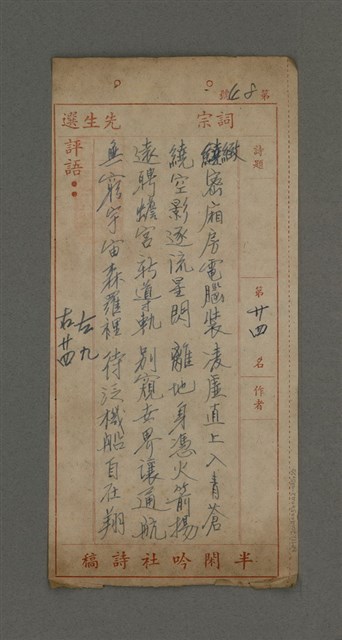 第48號
詞宗 先生選
詩題
第廿四名
作者
緻密廂房電腦裝 凌虛直上入青蒼
繞空影逐流星閃 離地身憑火箭揚
遠聘蟾宮新導軌 別窺世界讓通航
無窮宇宙森羅裡 待泛機船自在翔
評語
左九
右廿四
半閑吟社詩稿